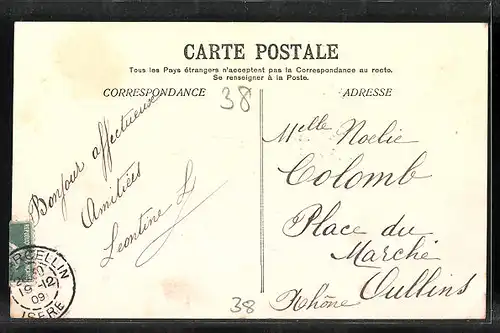 CARTE POSTALE
Tous les Pays étrangers n'acceptent pas la Correspondance au recto.
Se renseigner à la Poste.
CORRESPONDANCE
38
ADRESSE
Bonjour affectueuse
Amitiés
Leontine L
Melle Noelie
Colomb
Place du
Marché
Oullins
Rhône
38
RCELLIN
19-12
09
ISERE